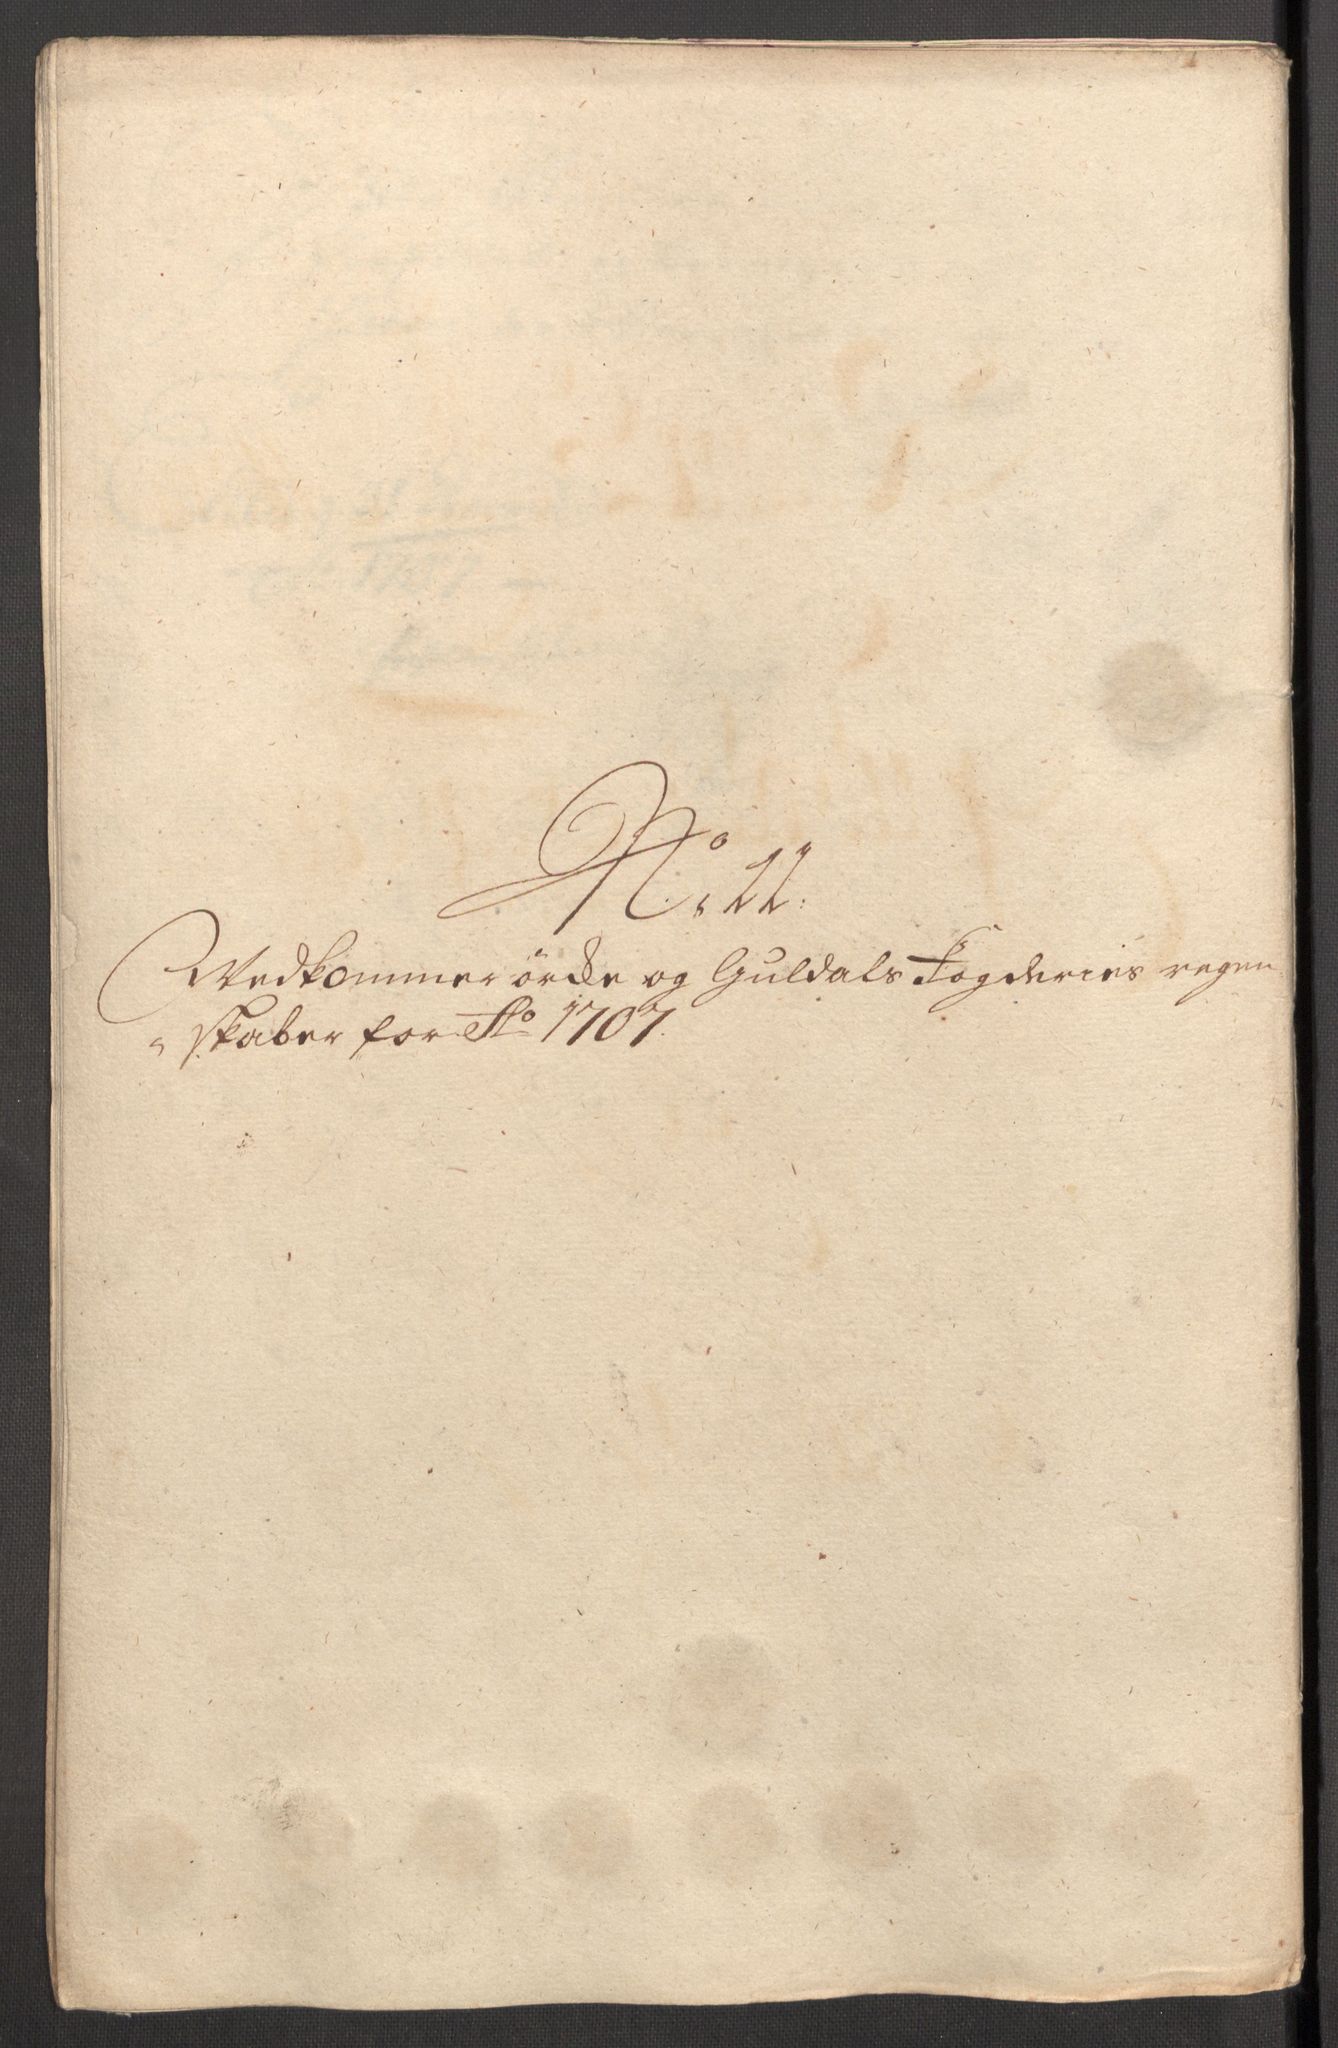 No. 11.
Vedkommer örcke og Guldals Fogderies regen
skaber for Ao 1707.